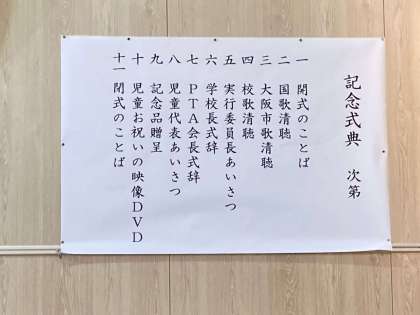 記念式典 次第
一 開式のことば
二 国歌清聴
三 大阪市歌清聴
四 校歌清聴
五 実行委員長あいさつ
六 学校長式辞
七 PTA会長式辞
八 児童代表あいさつ
九 記念品贈呈
十 児童お祝いの映像DVD
十一 閉式のことば